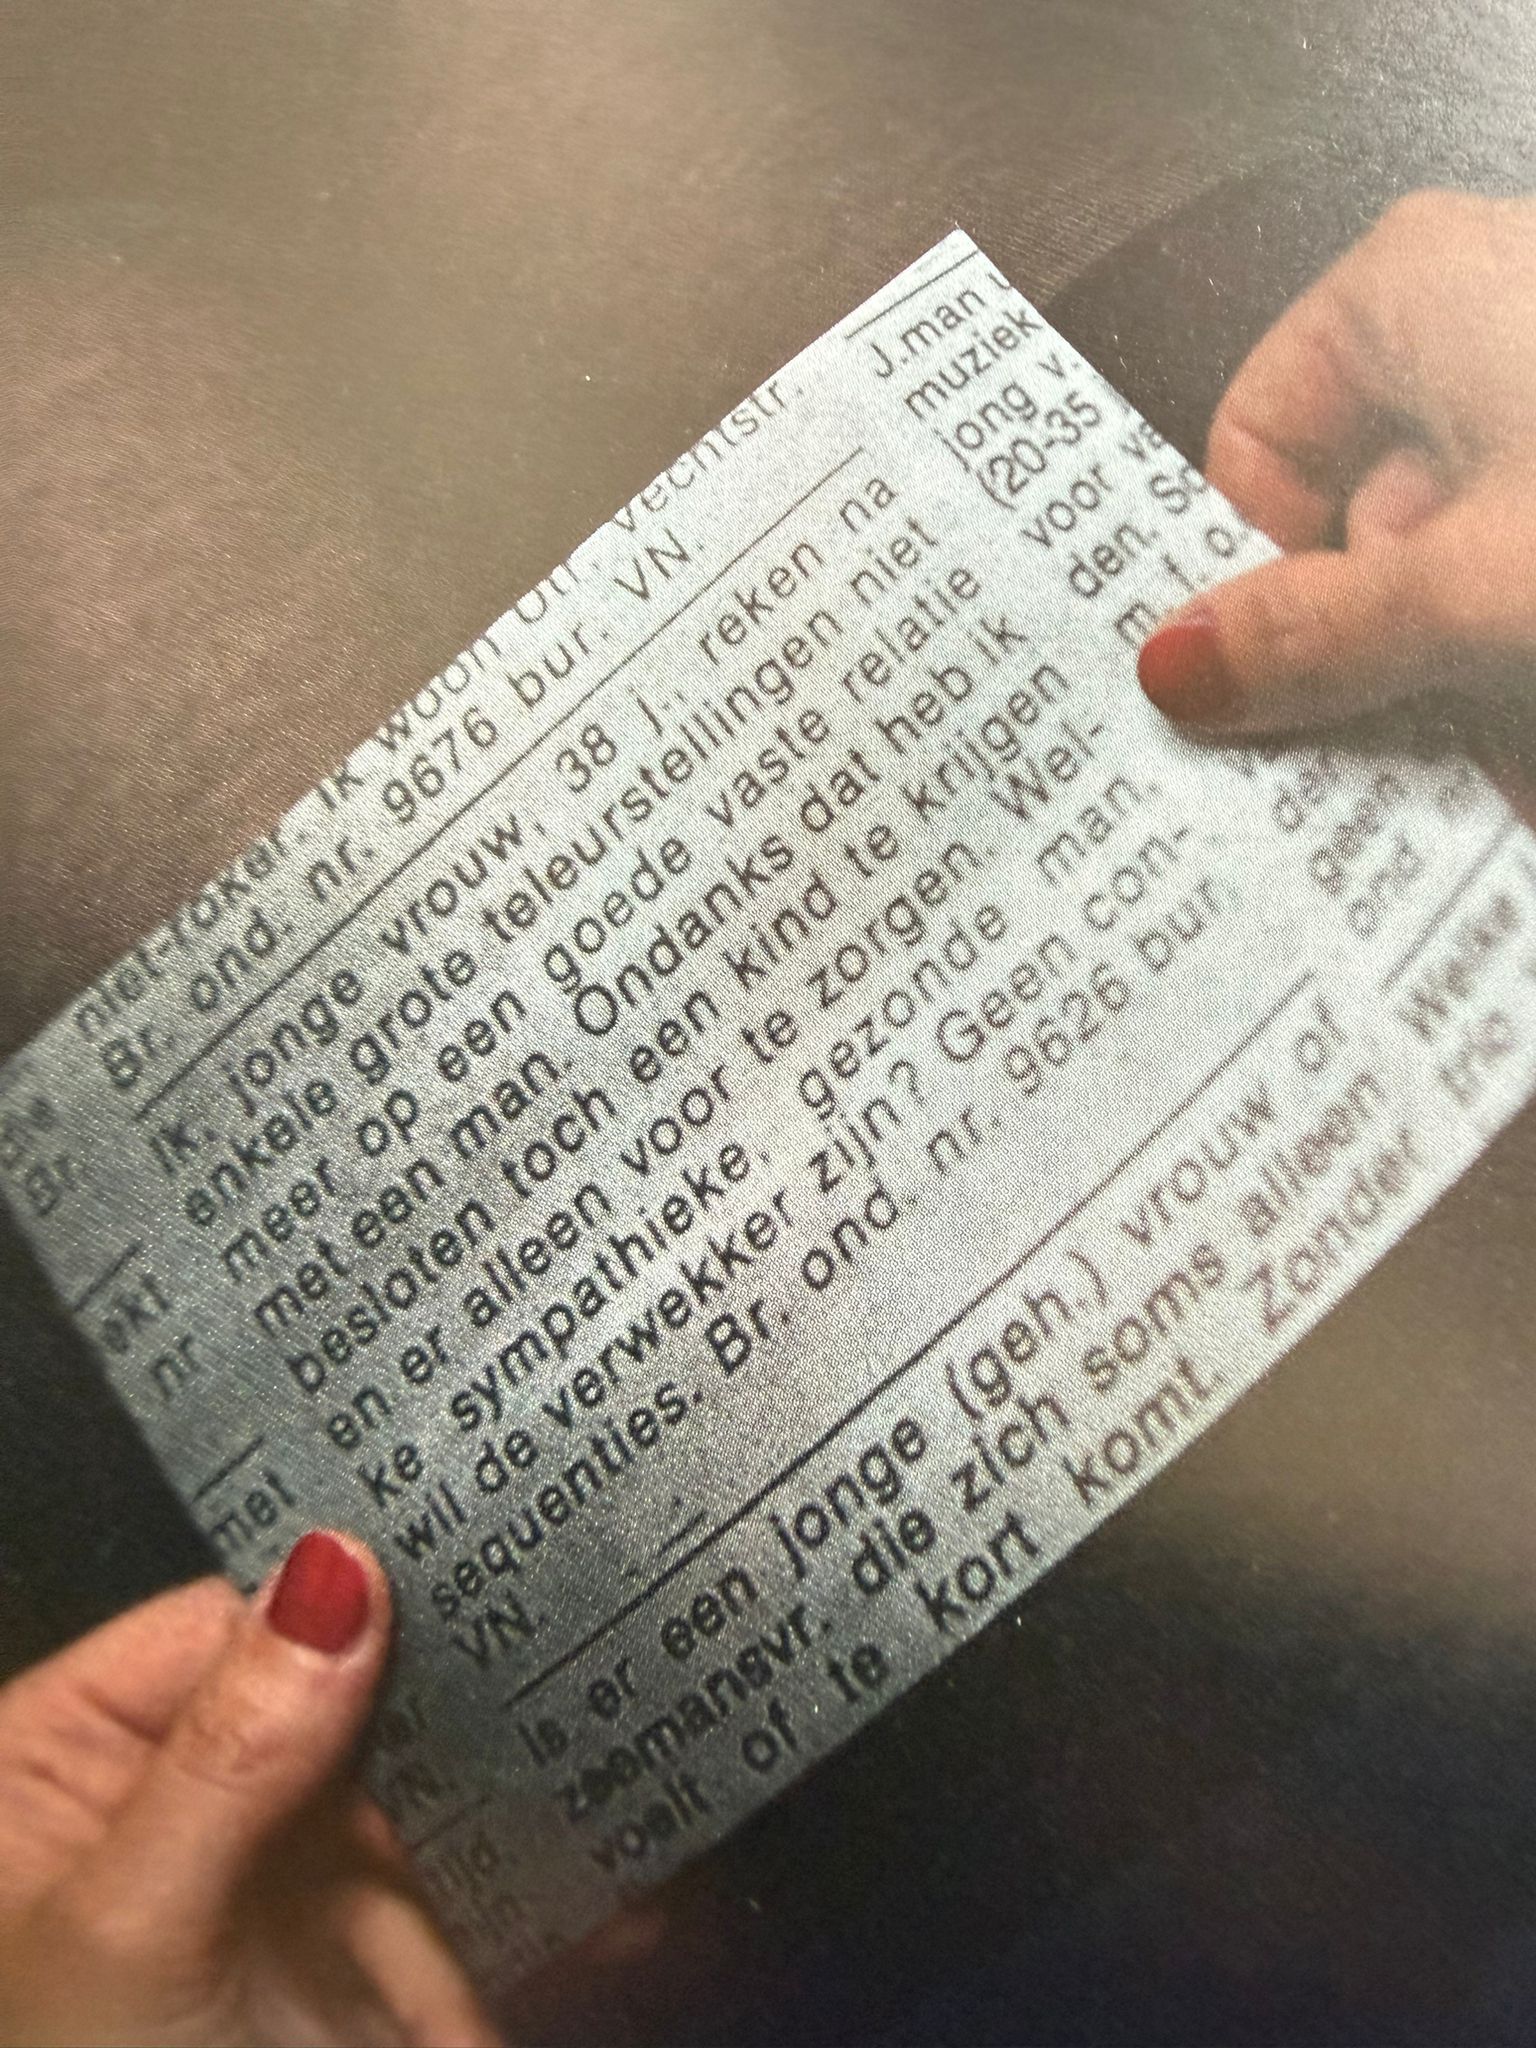 niet-roker. Ik woon Utr. Vechtstr.
Br. ond. nr. 9676 bur. VN.
Ik, jonge vrouw, 38 j., reken na
enkele grote teleurstellingen niet
meer op een goede vaste relatie
met een man. Ondanks dat heb ik
besloten toch een kind te krijgen
en er alleen voor te zorgen Wel-
ke sympathieke, gezonde man,
wil de verwekker zijn? Geen con-
sequenties. Br. ond. nr. 9626 bur.
VN.
Is er een jonge (geh.) vrouw of
zeemansvr. die zich soms alleen
voelt of te kort komt. Zonder
J.man
muziek
jong v.
(20-35
voor va
den. Sc
m. f. o.
Br.
ekt
nr
met